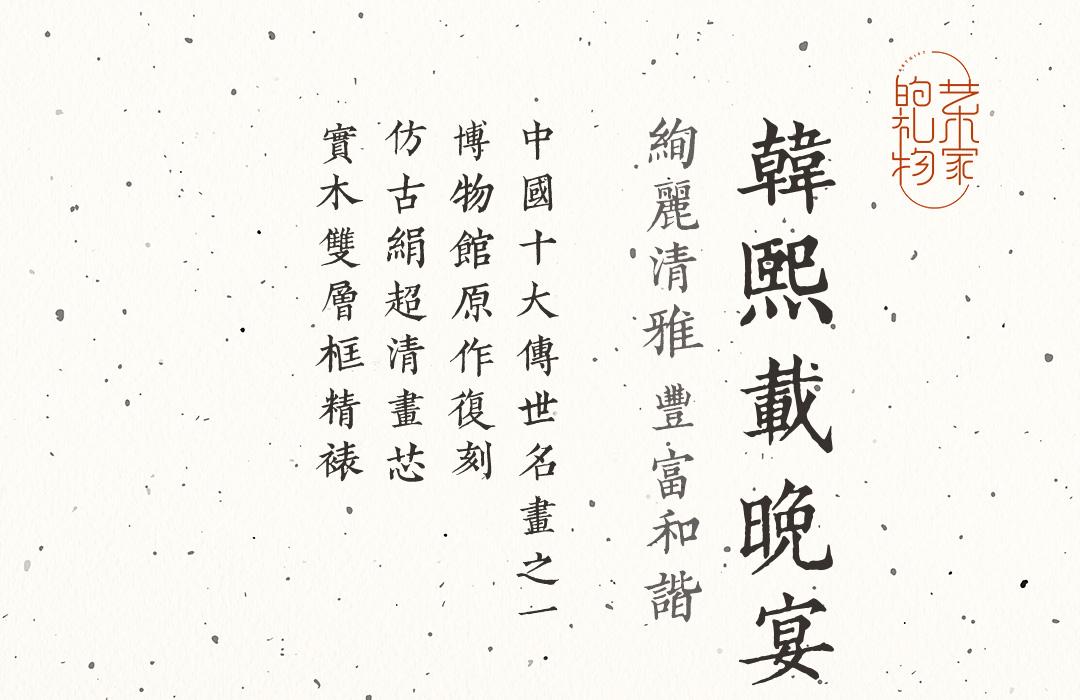 艺术家
的礼物
韓熙載晚宴
絢麗清雅 豐富和諧
中國十大傳世名畫之一
博物館原作復刻
仿古絹超清畫芯
實木雙層框精裱